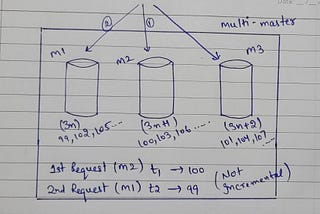 multi-master
② ①
m1 m2 m3
(3n) (3n+1) (3n+2)
99, 102, 105.... 100, 103, 106...... 101, 104, 107...
1st Request (m2) t1 → 100
2nd Request (m1) t2 → 99
(Not Incremental)